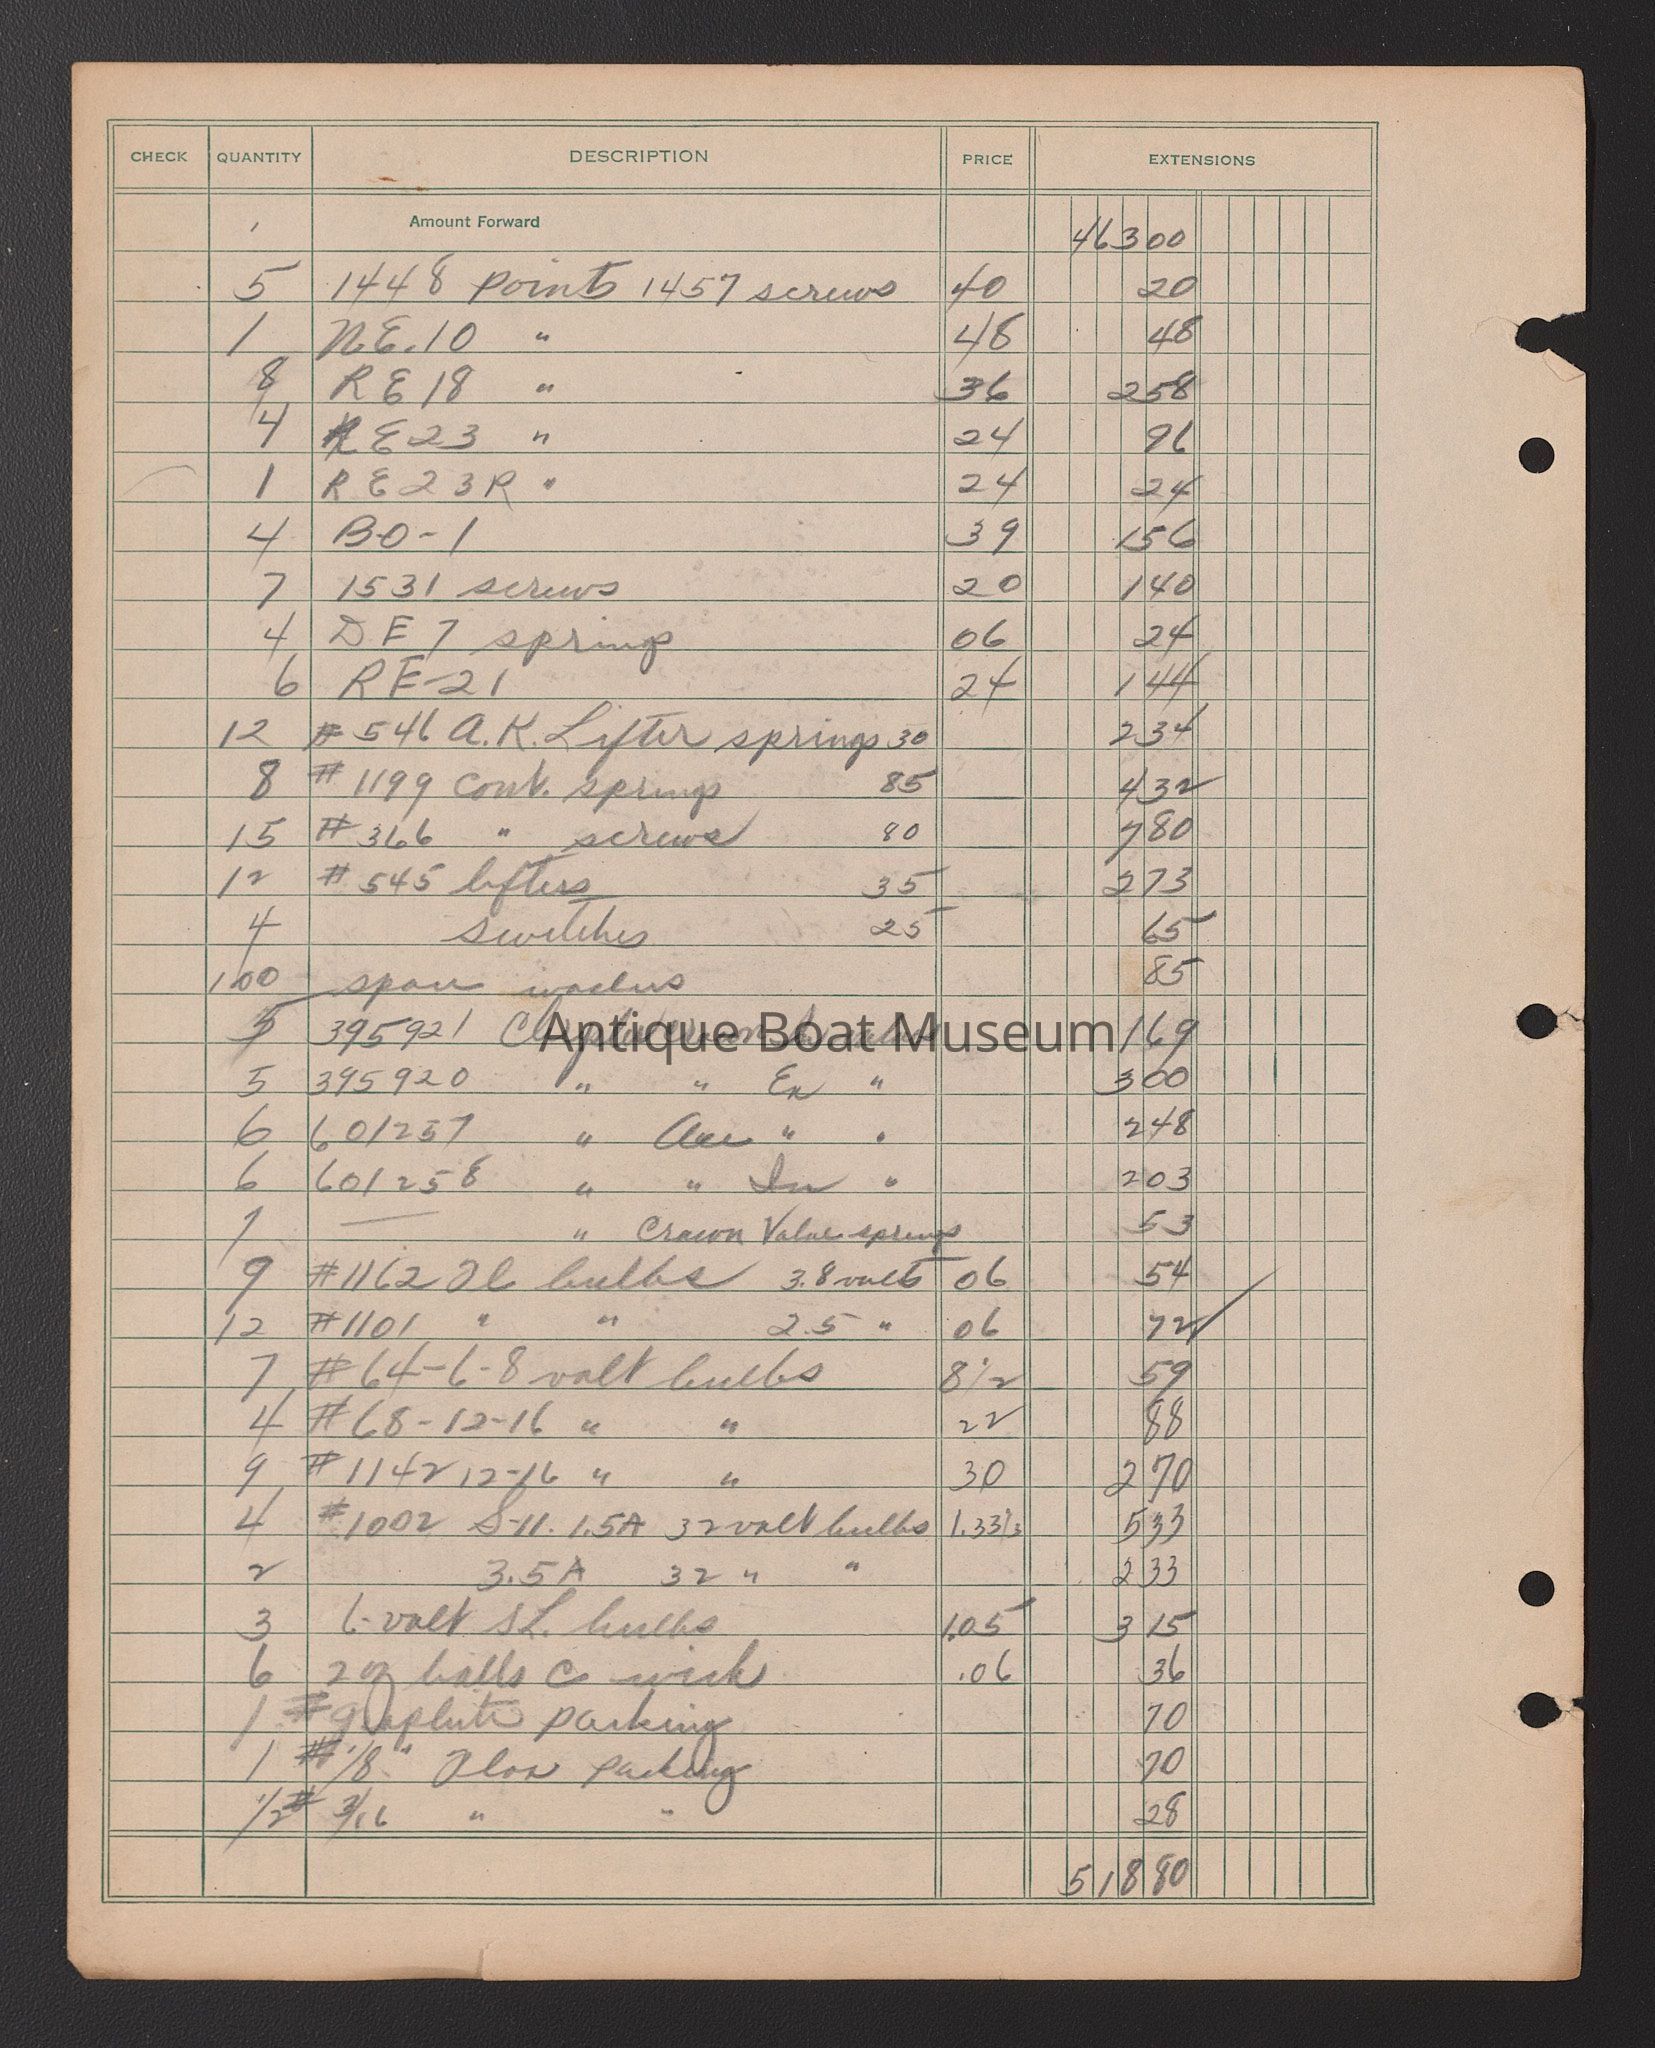 CHECK QUANTITY DESCRIPTION PRICE EXTENSIONS
Amount Forward 46300
5 1448 points 1457 screws 40 20
1 NE.10 " 48 48
8 RE18 " 36 258
4 RE23 " 24 96
1 RE23R " 24 24
4 B-O-1 39 156
7 1531 screws 20 140
4 DE7 springs 06 24
6 RE-21 24 144
12 # 546 A.K. Lifter springs 30 234
8 # 1199 cont. springs 85 432
15 # 366 " screws 80 780
12 # 545 lifters 35 273
4 switches 25 65
100 85
5 395921 169
Antique Boat Museum
5 395920 " " Ex " 300
6 601257 " Ace " " 248
6 601258 " " In " 203
7 — " Crown Valve springs 53
9 #1162 Fl bulbs 3.8 volts 06 54
12 #1101 " " 2.5 " 06 72
7 #64-6-8 volt bulbs 8 1/2 59
4 #68-12-16 " " 22 88
9 #1142 12-16 " " 30 270
4 #1002 S-11. 1.5A 32 volt bulbs 1.33 1/3 533
2 3.5A 32 " " 233
3 6-volt SL. bulbs 1.05 315
6 2 oz balls C wick .06 36
1 # graphite packing 70
1 # 1/8" Flax packing 70
1/2 # 3/16 " " 28
51880